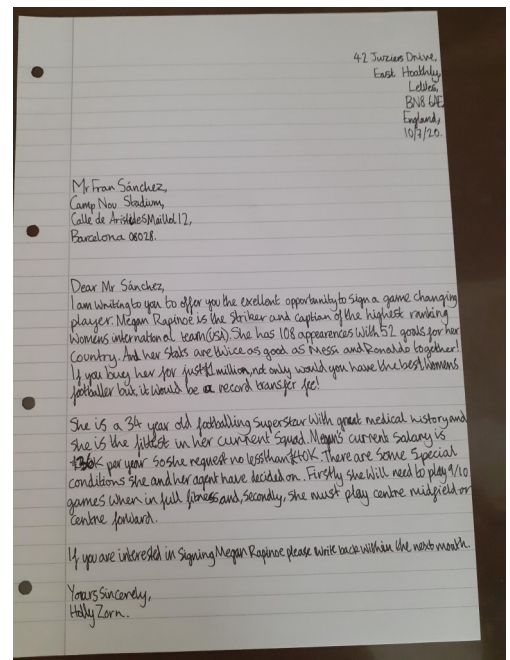 42 Juziers Drive,
East Hoathly,
Lewes,
BN8 6AE
England,
10/7/20.
Mr Fran Sánchez,
Camp Nou Stadium,
Calle de Aristides Maillol 12,
Barcelona 08028.
Dear Mr Sánchez,
I am writing to you to offer you the exellent opportunity to sign a game changing
player. Megan Rapinoe is the striker and caption of the highest ranking
womens international team (USA). She has 108 appearences with 52 goals for her
country. And her stats are twice as good as Messi and Ronaldo together!
If you buy her for just £1 million, not only would you have the best womens
footballer but, it would be a record transfer fee!
She is a 34 year old footballing superstar with great medical history and
she is the fittest in her current squad. Megan's current salary is
per year so she request no less than £40K. There are some special
conditions she and her agent have decided on. Firstly she will need to play 9/10
games when in full fitness and, secondly, she must play centre midfield or
centre forward.
If you are interested in signing Megan Rapinoe please write back within the next month.
Yours Sincerely,
Holly Zorn.